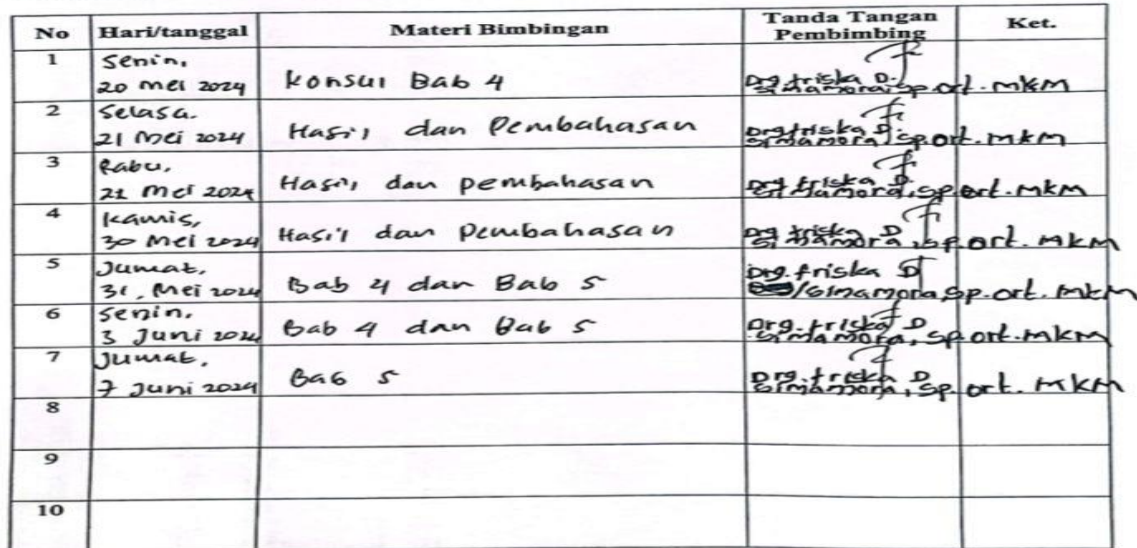 No Hari/tanggal Materi Bimbingan Tanda Tangan Pembimbing Ket.
1 Senin,
20 Mei 2024 Konsul Bab 4 Drg. Friska D.
Simamora, Sp.ort. MKM
2 Selasa.
21 Mei 2024 Hasil dan Pembahasan Drg. Friska D.
Simamora, Sp.ort. MKM
3 Rabu,
22 Mei 2024 Hasil dan pembahasan Drg. Friska D.
Simamora, Sp.ort. MKM
4 Kamis,
30 Mei 2024 Hasil dan Pembahasan Drg. Friska D.
Simamora, Sp.ort. MKM
5 Jumat,
31, Mei 2024 Bab 4 dan Bab 5 Drg. Friska D
Simamora, Sp.ort. MKM
6 Senin,
3 Juni 2024 Bab 4 dan Bab 5 Drg. Friska D
Simamora, Sp.ort. MKM
7 Jumat,
7 Juni 2024 Bab 5 Drg. Friska D
Simamora, Sp.ort. MKM
8
9
10